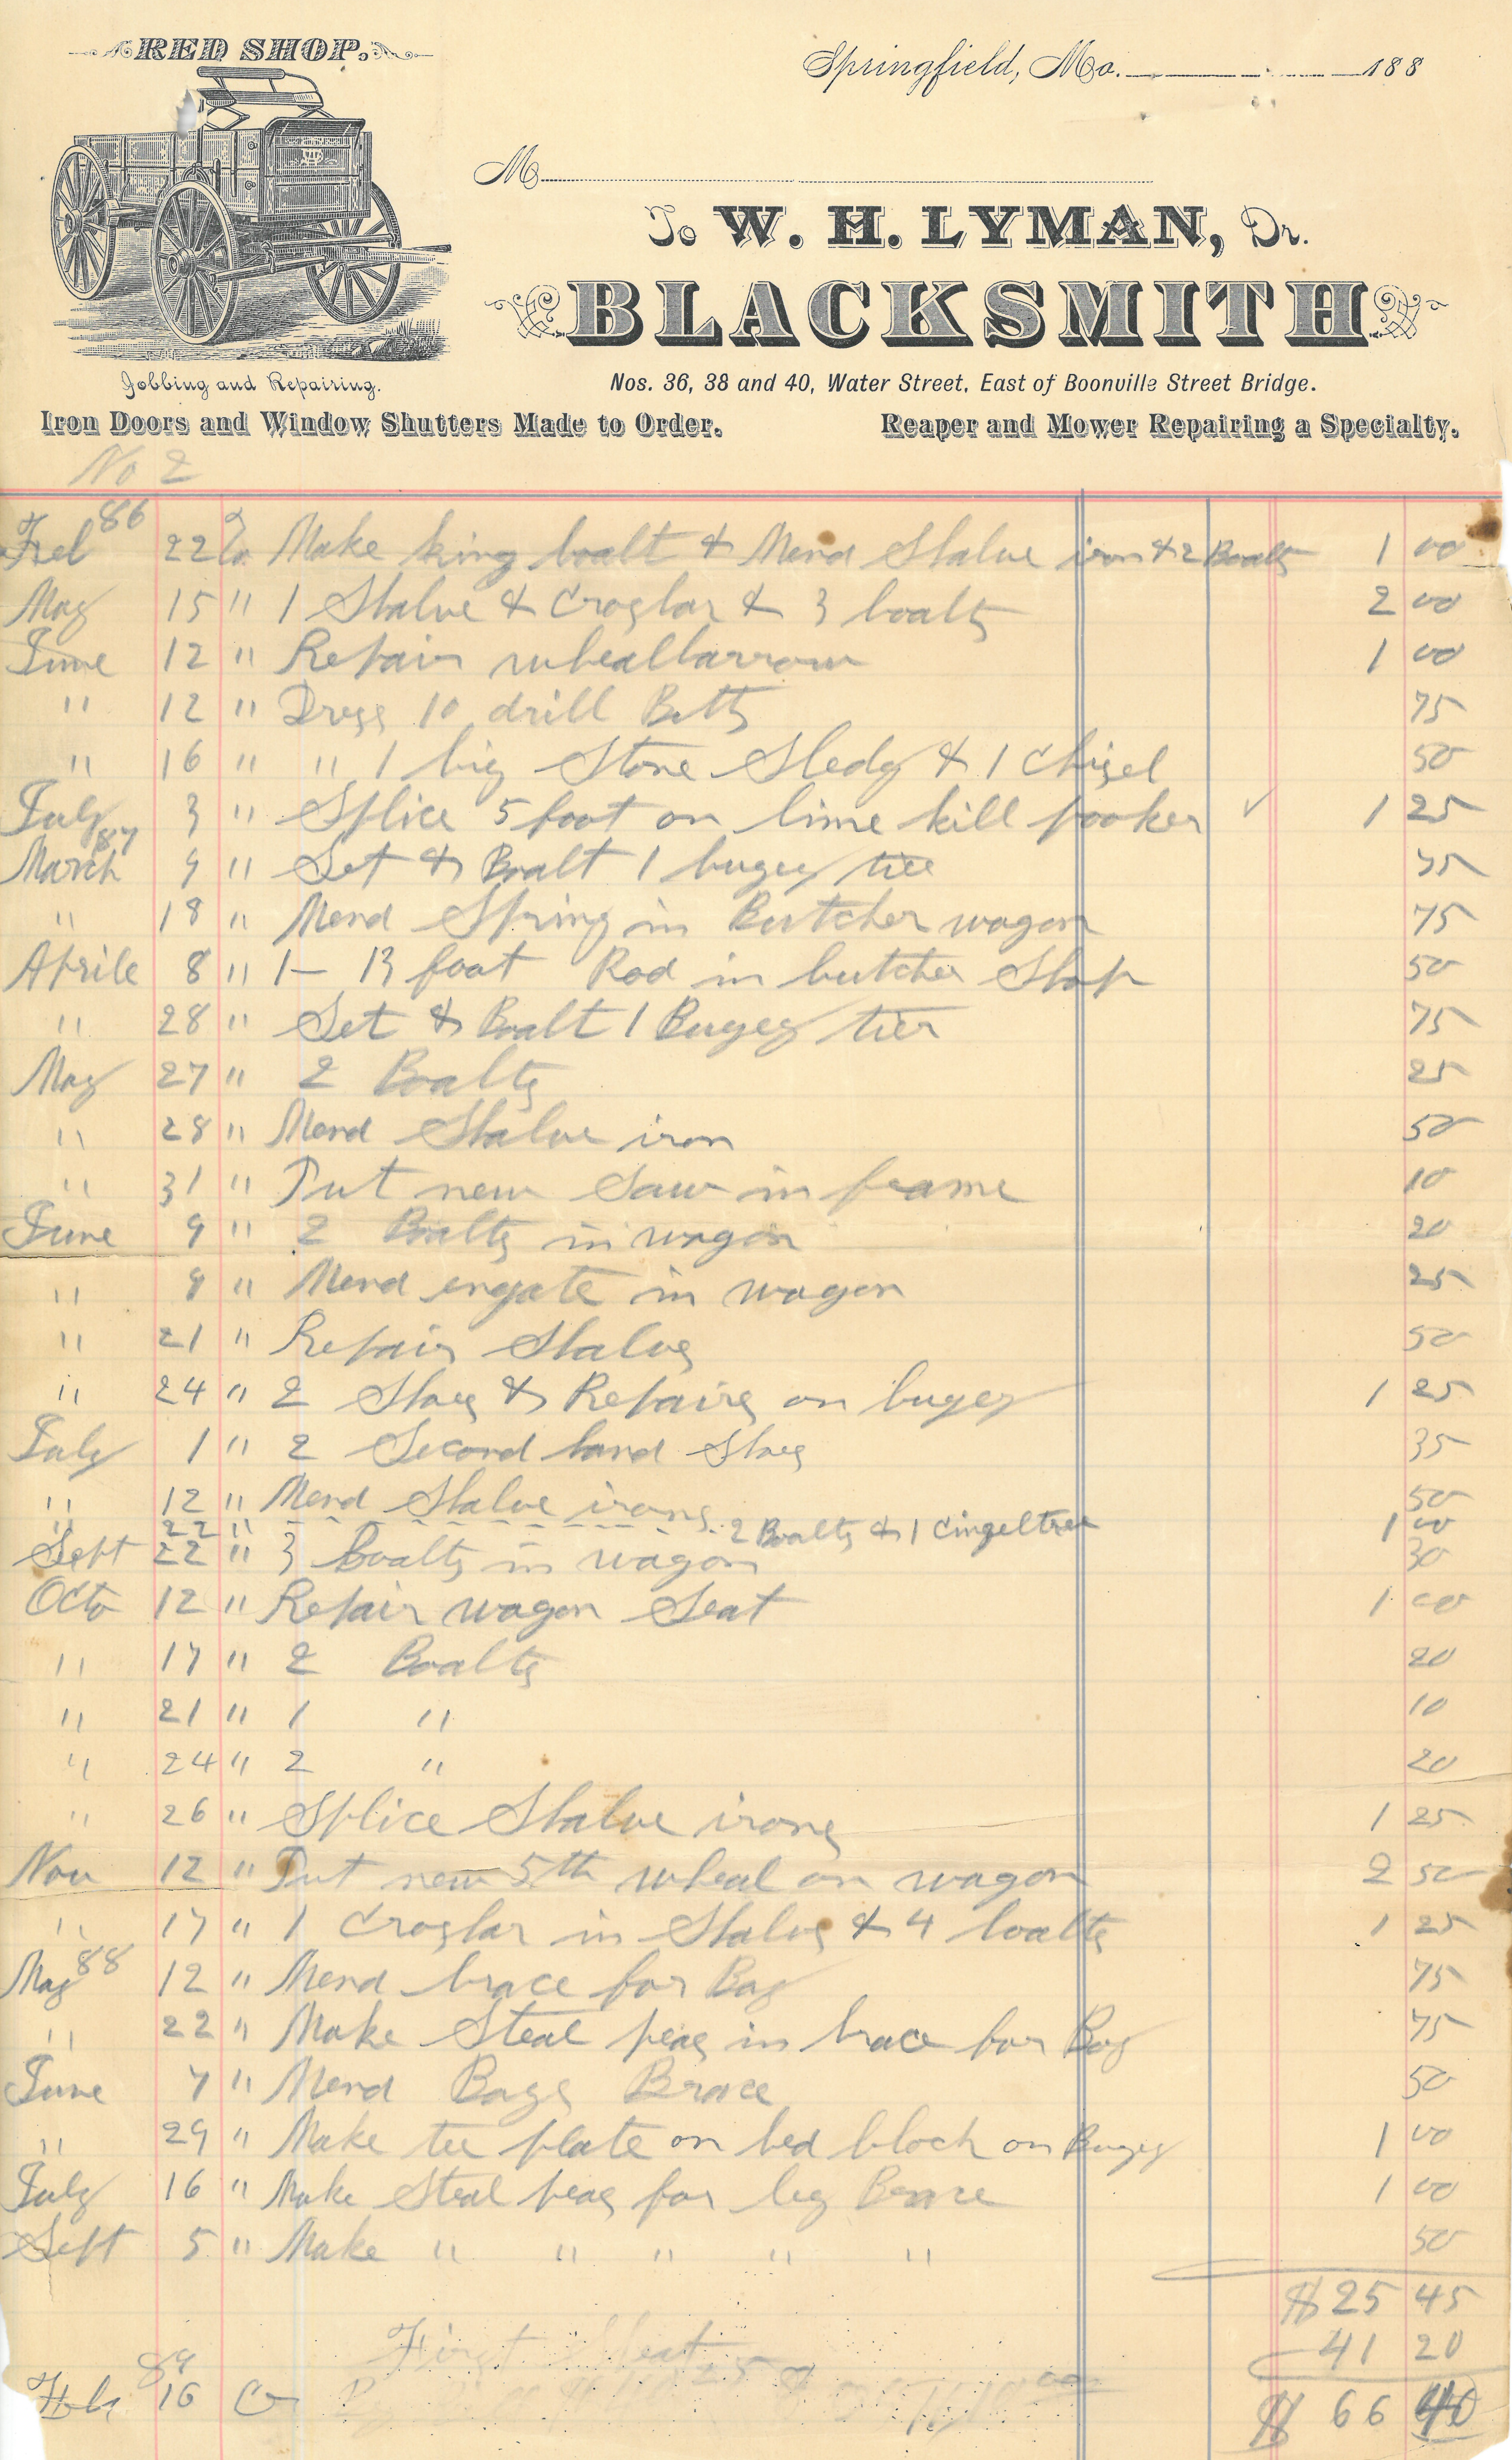 RED SHOP.
Springfield, Mo. 188
M
To W. H. LYMAN, Dr.
BLACKSMITH
Jobbing and Repairing.
Nos. 36, 38 and 40, Water Street, East of Boonville Street Bridge.
Iron Doors and Window Shutters Made to Order.
Reaper and Mower Repairing a Specialty.
No 2
86
Feb 22 To Make king boalt & Mend Shalve iron & 2 Boalts 1 00
May 15 " 1 Shalve & Crosbar & 3 boalts 2 00
June 12 " Repair wheallbarrow 1 00
" 12 " Dress 10 drill Bitts 75
" 16 " " 1 big Stone Sledg & 1 Chisel 50
July 3 " Splice 5 foot on lime kill pooker ✓ 1 25
87
March 9 " Set & Boalt 1 bugey tier 75
" 18 " Mend Spring in Butcher wagon 75
Aprile 8 " 1 - 13 foat Rod in butcher Shop 50
" 28 " Set & Boalt 1 Bugey tier 75
May 27 " 2 Boalts 25
" 28 " Mend Shalve iron 50
" 31 " Put new Saw in frame 10
June 9 " 2 Boalts in wagon 20
" 9 " Mend engate in wagon 25
" 21 " Repair Shalvs 50
" 24 " 2 Shoes & Repairs on bugey 1 25
July 1 " 2 Second hand Shoes 35
" 12 " Mend Shalve irons 50
" 22 " - - - - - - - - 2 Boalts & 1 Cingeltree 1 00
Sept 22 " 3 Boalts in wagon 30
Octo 12 " Repair wagon Seat 1 00
" 17 " 2 Boalts 20
" 21 " 1 " 10
" 24 " 2 " 20
" 26 " Splice Shalve irons 1 25
Nov 12 " Put new 5th wheal on wagon 2 50
" 17 " 1 Crosbar in Shalvs & 4 boalts 1 25
88
May 12 " Mend brace for Boy 75
" 22 " Make Steal peas in brace for Boy 75
June 7 " Mend Boys Brace 50
" 29 " Make tee plate on bed block on Bugey 1 00
July 16 " Make Steal peas for leg Brace 1 00
Sept 5 " Make " " " " " 50
$ 25 45
First Sheat 41 20
89
Feb 16 Cr $ 66 40